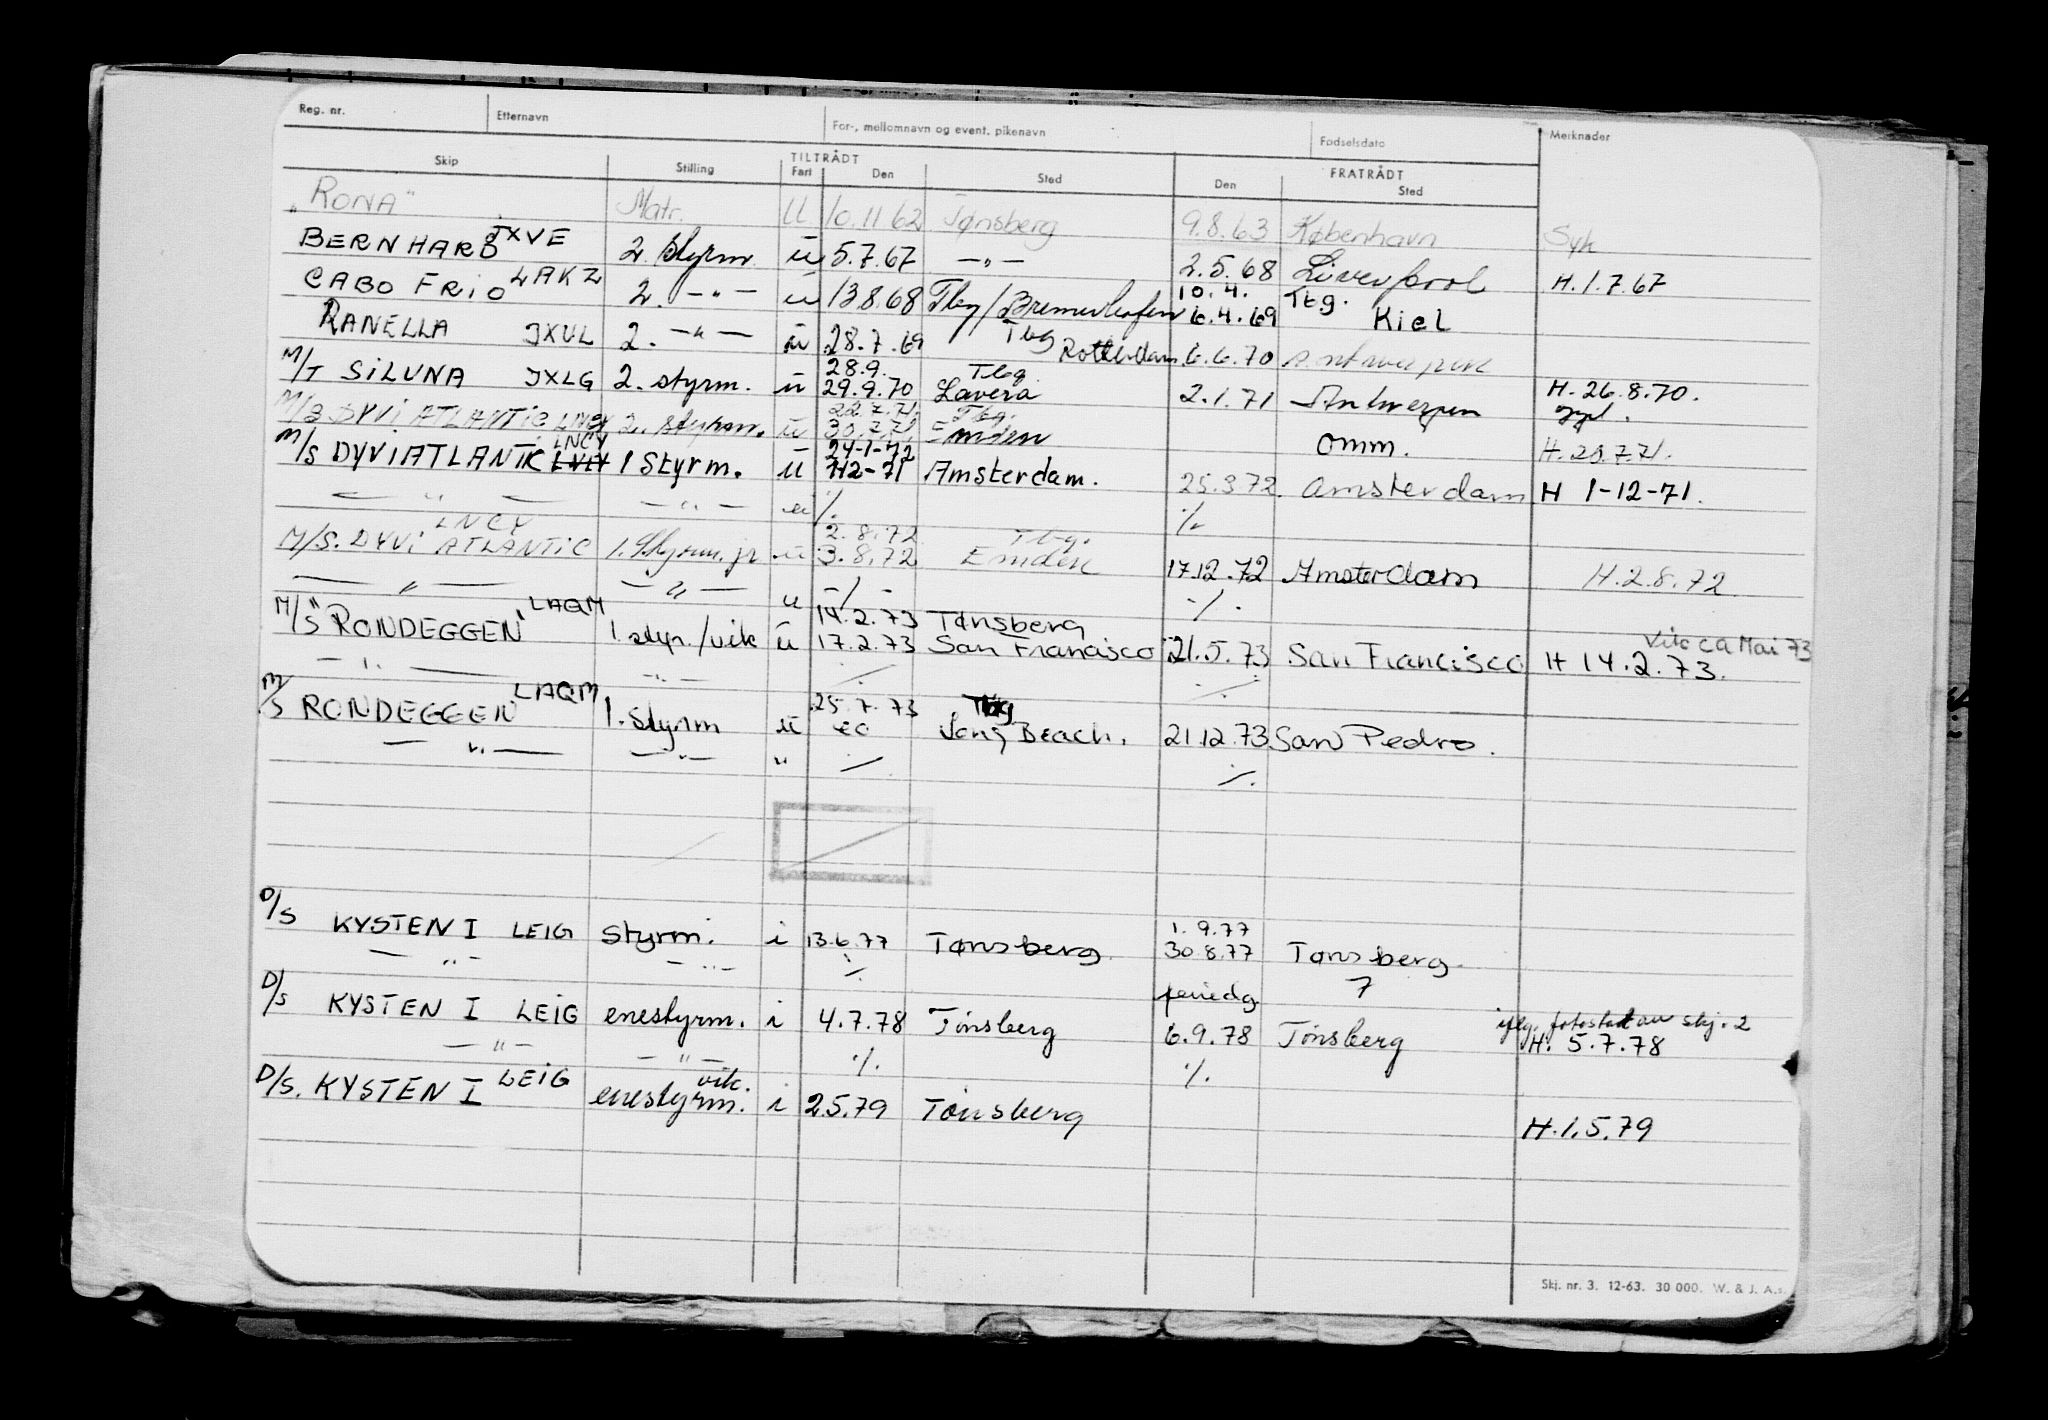 Reg. nr. Etternavn For-, mellomnavn og event. pikenavn Fødselsdato Merknader
TILTRÅDT FRATRÅDT
Skip Stilling Fart Den Sted Den Sted
„RONA" Matr. U 10.11 62 Tønsberg 9.8.63 København Syk
BERNHARD JXVE 2 styrm u 5.7.67 —„— 2.5.68 Liverpool H.1.7.67
10.4. Tbg.
CABO FRIO LAKZ 2. —„— u 13.8.68 Tbg/Bremerhafen 6.4.69 Kiel
Tbg
RANELLA JXUL 2. —„— u 28.7.69 Rotterdam 6.6.70 Antwerpen
28.9. Tbg.
M/T SILUNA JXLG 2. styrm. u 29.9.70 Lavera 2.1.71 Antwerpen H.26.8.70.
22.7.71. Tbg.
M/S DYVI ATLANTIC LNCY 2. styrm. u 30.7.71 Emden omm. H.20.7.71.
LNCY 24-1-72
M/S DYVI ATLANTIC 1 Styrm. U 7-12-71 Amsterdam. 25.3.72. Amsterdam H 1-12-71.
— „ — —„— u ./. ./.
LNCY 2.8.72 Tbg.
M/S. DYVI ATLANTIC 1. Styrm. jr u 3.8.72 Emden 17.12.72 Amsterdam H.2.8.72.
— „ — — „ — u -/- ./.
LAQM 14.2.73 Tønsberg Vik ca Mai 73
M/S "RONDEGGEN" 1. styr./vik u 17.2.73 San Francisco 21.5.73 San Francisco H 14.2.73.
— „ — —„— ./. ./.
LAQM 25.7.73 Tbg
M/S RONDEGGEN 1. Styrm u Long Beach. 21.12.73 San Pedro.
— „ — —„— " ./. ./.
1.9.77
D/S KYSTEN I LEIG styrm. i 13.6.77 Tønsberg. 30.8.77 Tønsberg.
— „ — —„— ./. feriedg. 7
iflg. fotostat av skj. 2
D/S KYSTEN I LEIG enestyrm. i 4.7.78 Tønsberg 6.9.78 Tønsberg H. 5.7.78
— „ — — „ — ./. ./.
vik.
D/S. KYSTEN I LEIG enestyrm. i 2.5.79 Tønsberg H.1.5.79
Skj. nr. 3. 12-63. 30 000. W. & J. A.s.